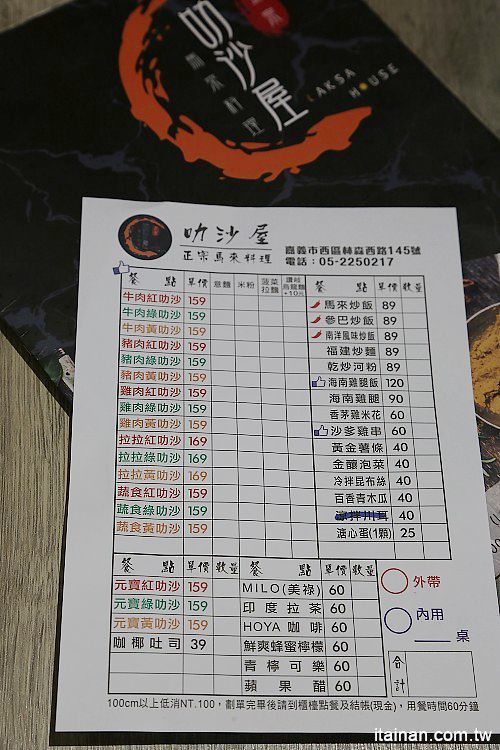 叻沙屋
南來料理
LAKSA HOUSE
叻沙屋
正宗馬來料理
嘉義市西區林森西路145號
電話：05-2250217
餐 點 單價 意麵 米粉 菠菜拉麵 讚岐烏龍麵+10元
牛肉紅叻沙 159
牛肉綠叻沙 159
牛肉黃叻沙 159
豬肉紅叻沙 159
豬肉綠叻沙 159
豬肉黃叻沙 159
雞肉紅叻沙 159
雞肉綠叻沙 159
雞肉黃叻沙 159
拉拉紅叻沙 169
拉拉綠叻沙 169
拉拉黃叻沙 169
蔬食紅叻沙 159
蔬食綠叻沙 159
蔬食黃叻沙 159
餐 點 單價 數量
馬來炒飯 89
參巴炒飯 89
南洋風味炒飯 89
福建炒麵 89
乾炒河粉 89
海南雞腿飯 120
海南雞腿 90
香茅雞米花 60
沙爹雞串 60
黃金薯條 40
金釀泡菜 40
冷拌昆布絲 40
百香青木瓜 40
涼拌川耳 40
溏心蛋(1顆) 25
餐 點 單價 數量
元寶紅叻沙 159
元寶綠叻沙 159
元寶黃叻沙 159
咖椰吐司 39
餐 點 單價 數量
MILO(美祿) 60
印度拉茶 60
HOYA 咖啡 60
鮮爽蜂蜜檸檬 60
青檸可樂 60
蘋果醋 60
外帶
內用
桌
合計
100cm以上低消NT.100，劃單完畢後請到櫃檯點餐及結帳(現金)，用餐時間60分鐘
itainan.com.tw